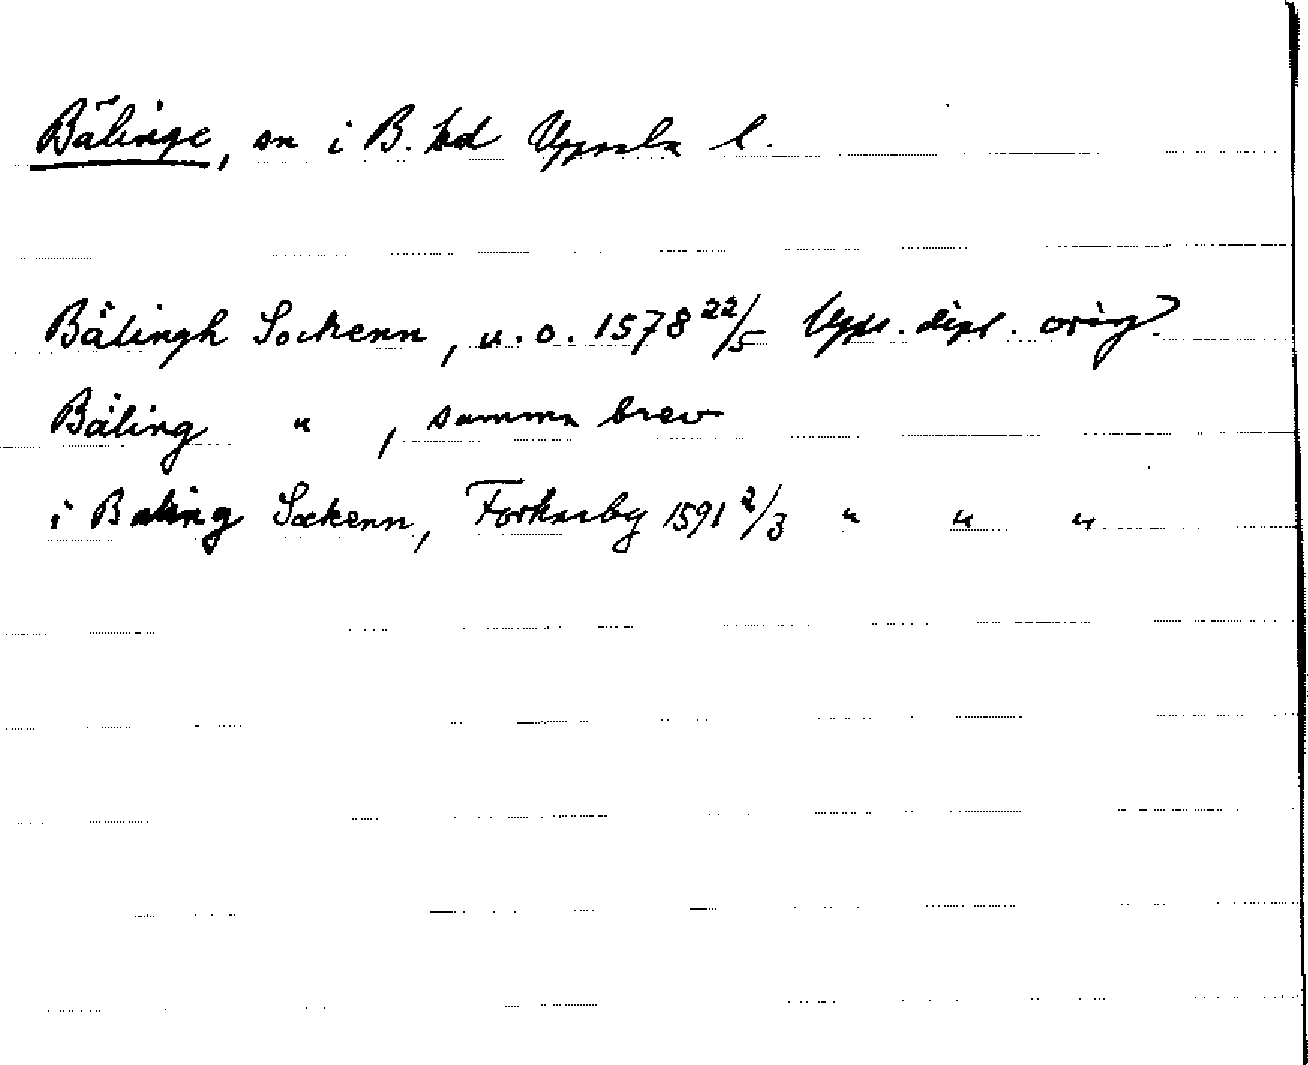 Bälinge, sn i B. hd Uppsala l.
Bälingh Sockenn, u.o. 1578 22/5 Upps. dipl. orig.
Bäling " , samma brev
i Baling Sockenn, Forkarby 1591 2/3 " " "